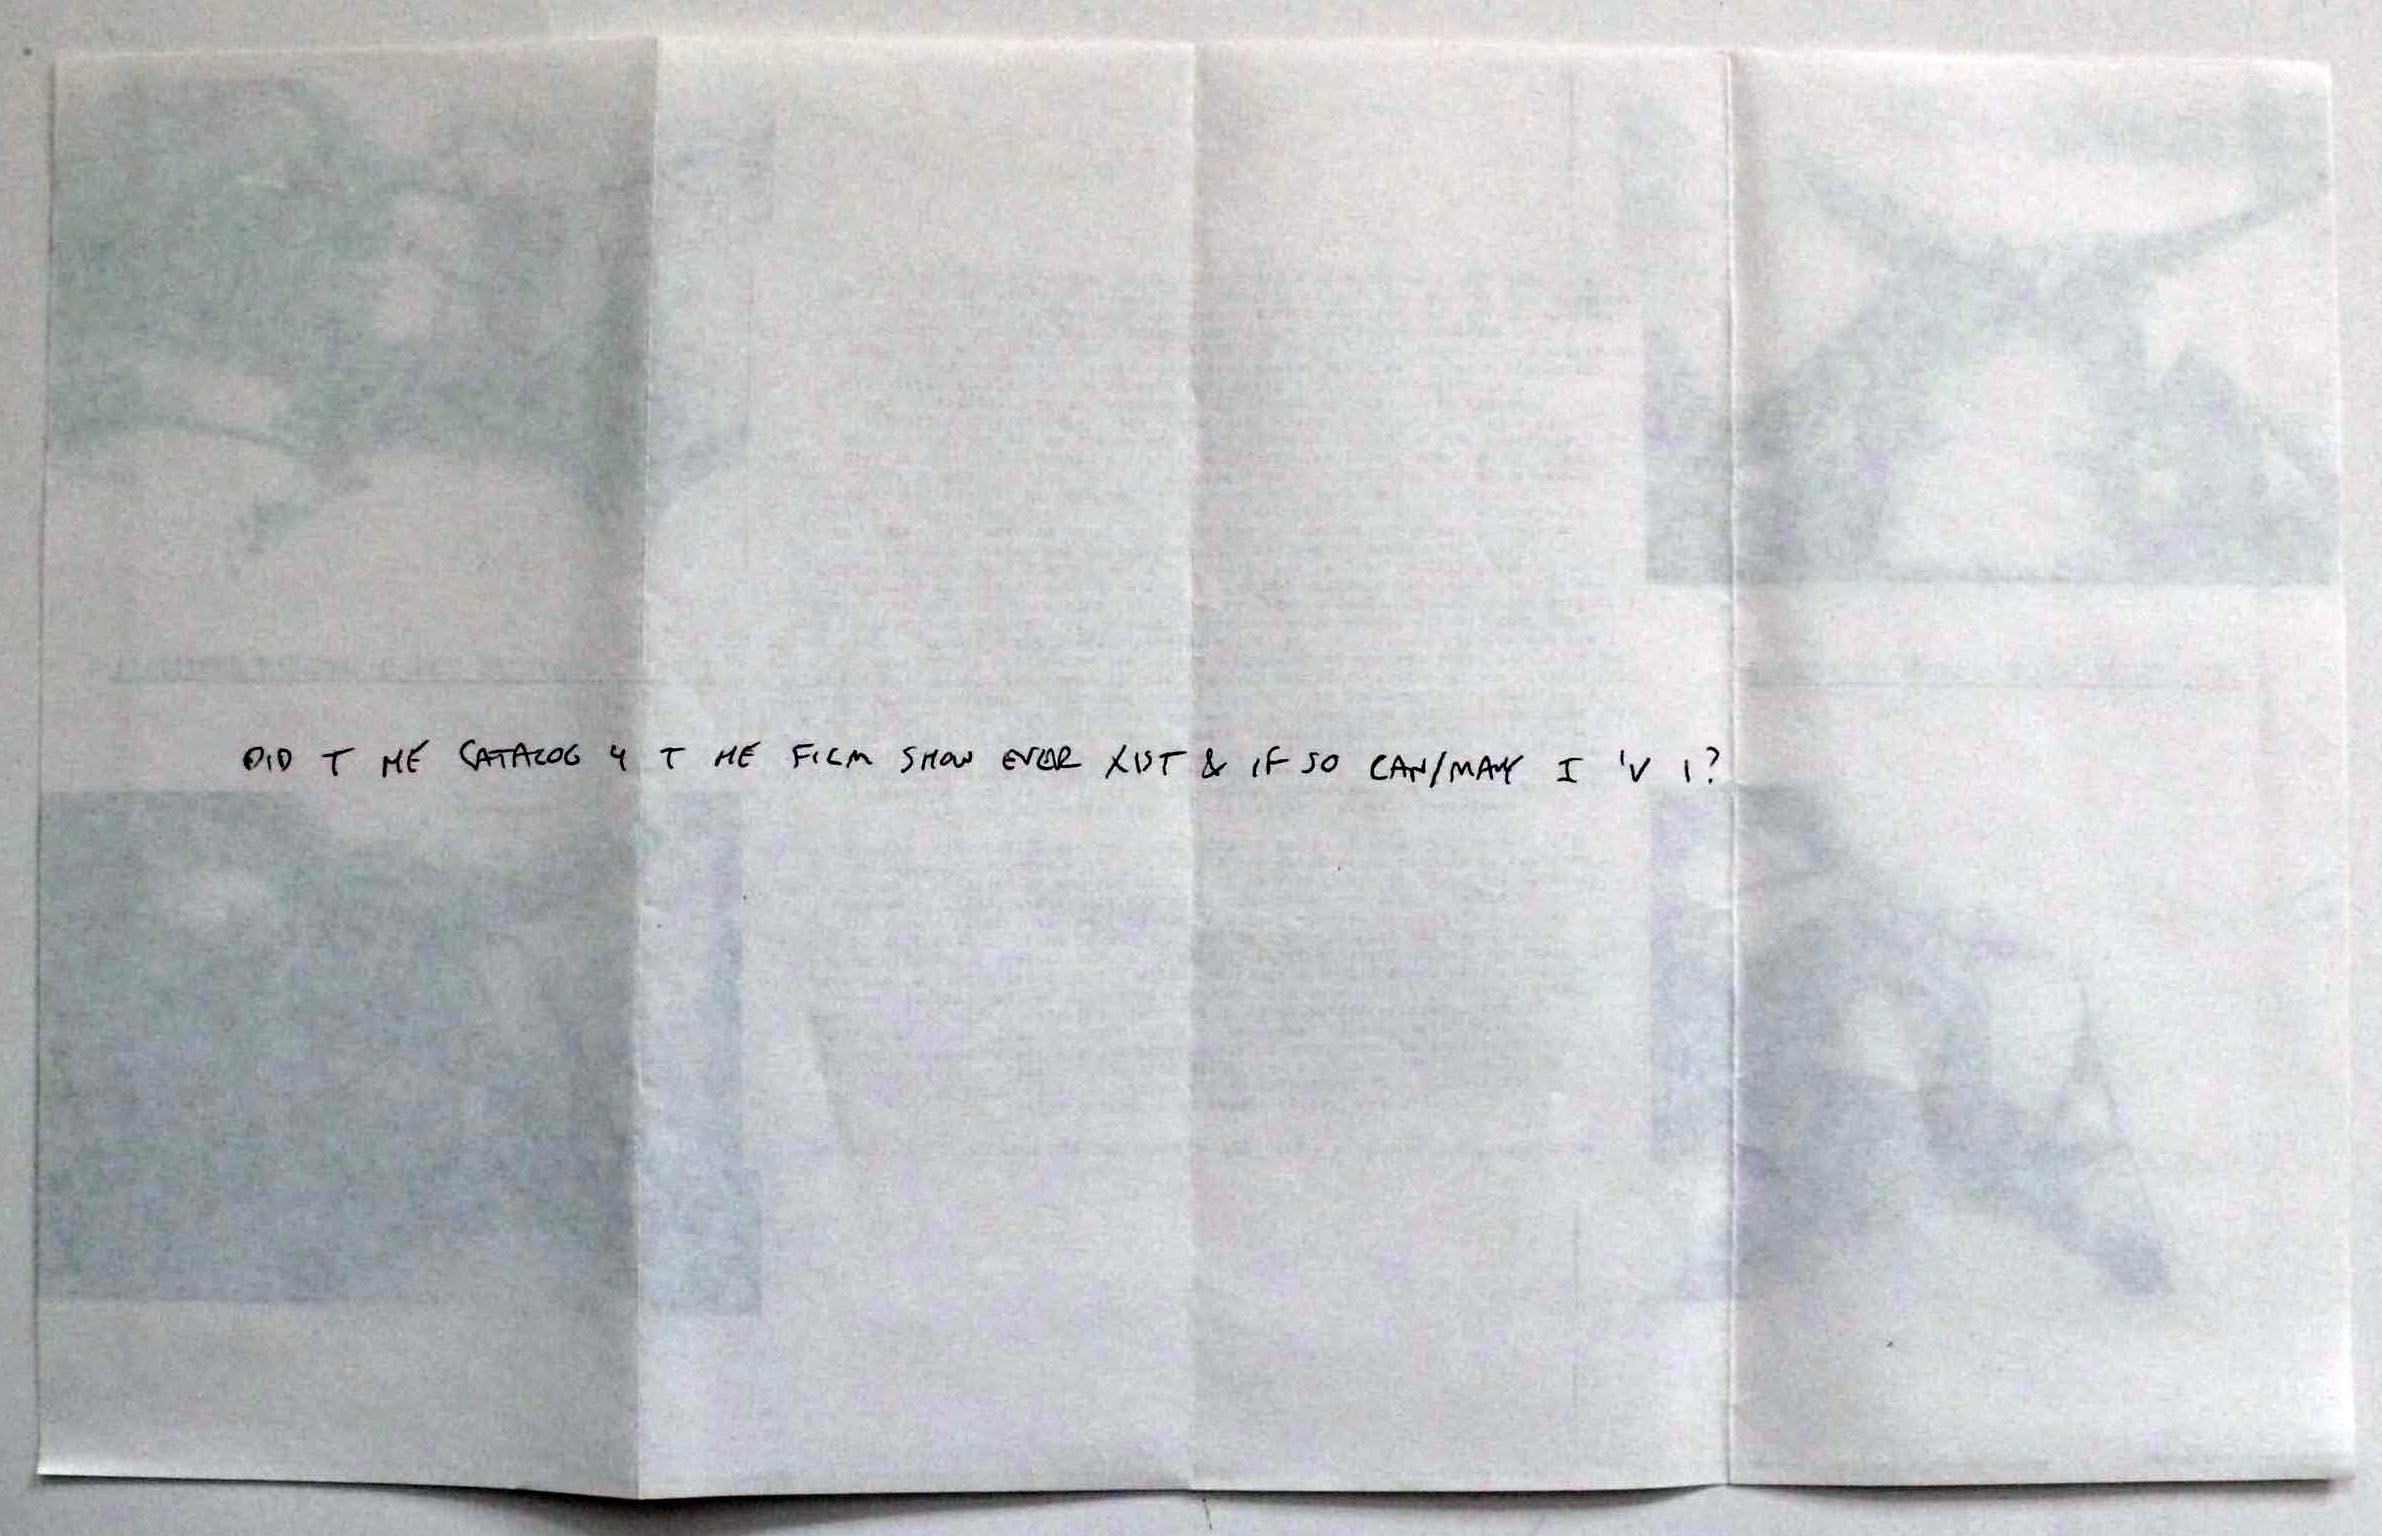 DID T HE CATALOG 4 T HE FILM SHOW EVER XIST & IF SO CAN/MAY I 'V 1?